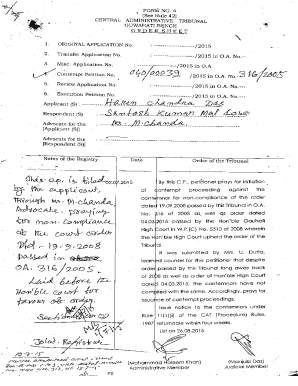 FORM NO. 4
(See Rule 42)
CENTRAL ADMINISTRATIVE TRIBUNAL
GUWAHATI BENCH
ORDER SHEET
1. ORIGINAL APPLICATION No. /2015
2. Transfer Application No. /2015 in O.A. No.
3. Misc. Application No. /2015 in O.A.
4. Contempt Petition No. 040/00039 /2015 in O.A. No. 316/2005
5. Review Application No. /2015 in O.A. No.
6. Execution Petition No. /2015 in O.A. No.
Applicant (S) : Haren Chandra Das
Respondent (S) : Santosh Kumar Mal
Advocate for the : Mr. M. Chanda.
{Applicant (S)}
Advocate for the :
{Respondent (S)}
Notes of the Registry Date Order of the Tribunal
This C.P. is filed
by the applicant
through Mr. M. Chanda
Advocate, praying
for non-compliance
of the court order
Dtd- 19-9-2008
passed in
OA. 316/2005.
Laid before the
Hon'ble court for
favour of order.
Section officer
Joint Registrar
.07.2015
By this C.P. petitioner prays for initiation
of contempt proceeding against the
contemnor for non-compliance of the order
dated 19.09.2008 passed by this Tribunal in O.A.
No. 316 of 2005 as well as order dated
04.03.2015 passed by the Hon'ble Gauhati
High Court in W.P.(C) No. 5310 of 2008 wherein
the Hon'ble High Court upheld the order of the
Tribunal.
It was submitted by Mrs. U. Dutta,
learned counsel for the petitioner that despite
order passed by this Tribunal long away back
of 2008 as well as order of Hon'ble High Court
dated 04.03.2015, the contemnors have not
complied with the same. Accordingly, prays for
issuance of contempt proceedings.
Issue notice to the contemnors under
Rule 11(1)(i) of the CAT (Procedure) Rules,
1987 returnable within four weeks.
List on 26.08.2015.
(Mohammad Haleem Khan)
Administrative Member
(Manjula Das)
Judicial Member